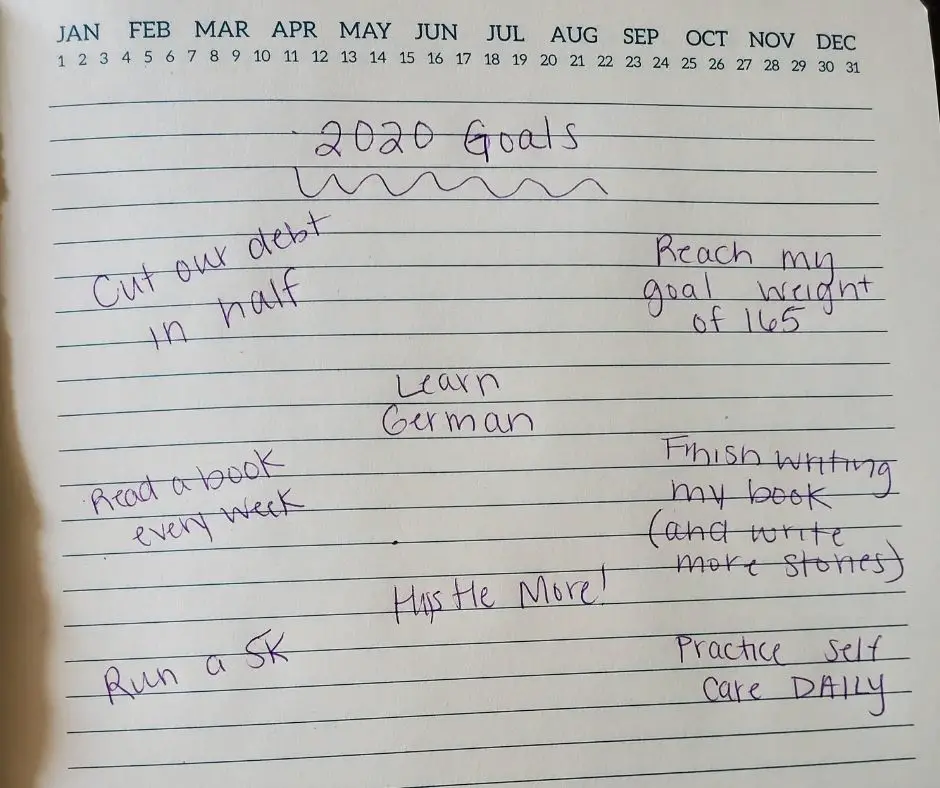 JAN FEB MAR APR MAY JUN JUL AUG SEP OCT NOV DEC
1 2 3 4 5 6 7 8 9 10 11 12 13 14 15 16 17 18 19 20 21 22 23 24 25 26 27 28 29 30 31
2020 Goals
Cut our debt
in half
Reach my
goal weight
of 165
Learn
German
Read a book
every week
Finish writing
my book
(and write
more stories)
Hustle More!
Run a 5K
Practice self
care DAILY